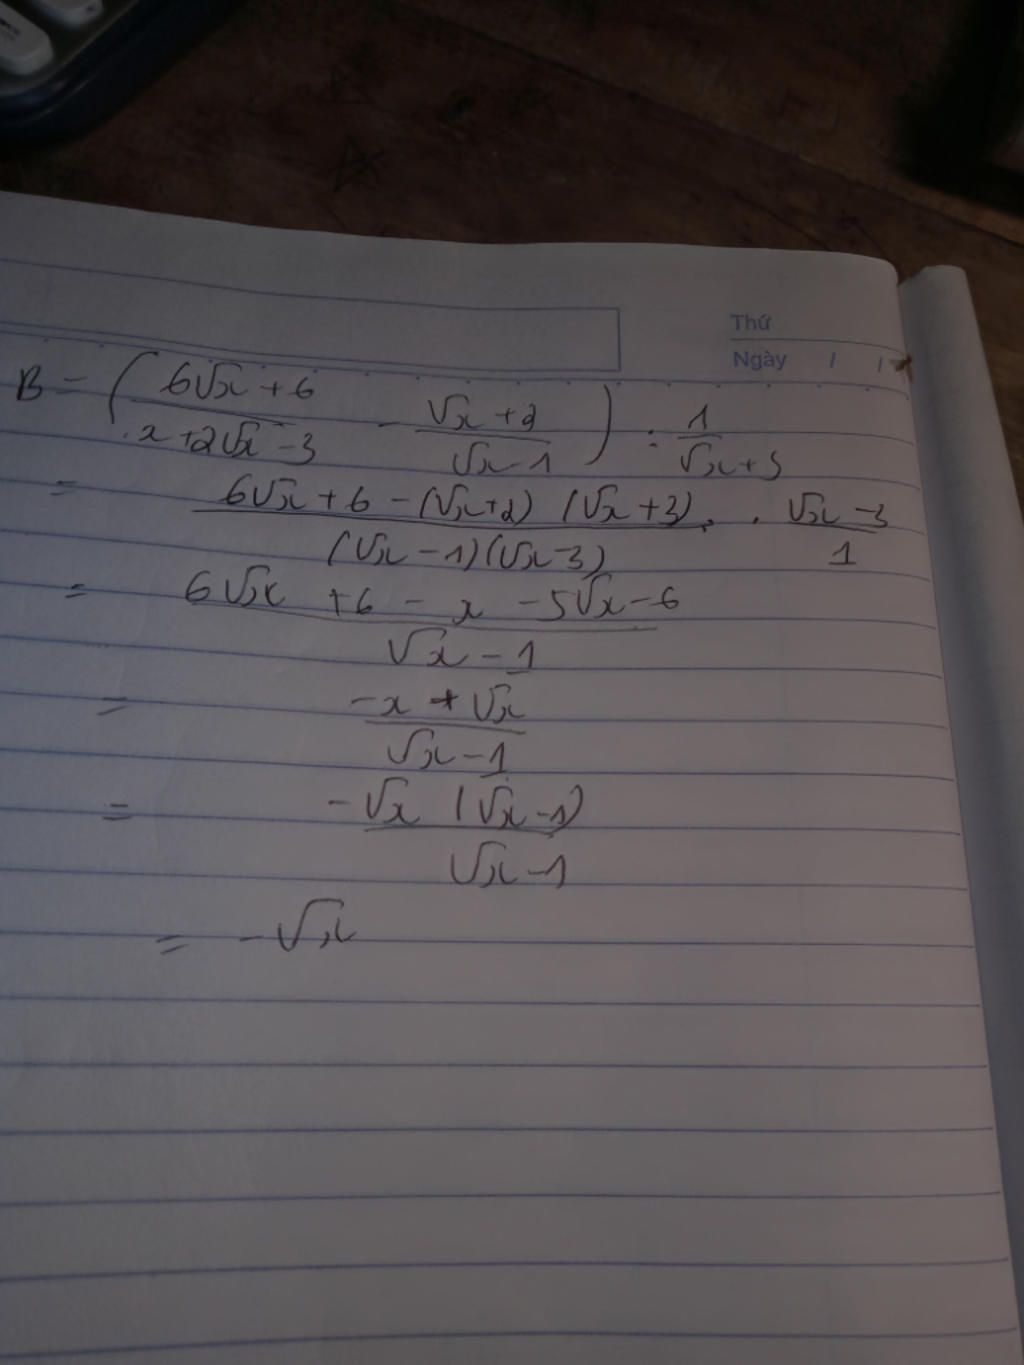 Thứ
Ngày / /
B = ( (6√x + 6)/(x + 2√x - 3) - (√x + 2)/(√x - 1) ) : 1/(√x + 3)
= (6√x + 6 - (√x + 2) (√x + 3))/((√x - 1)(√x - 3)) . (√x - 3)/1
= (6√x + 6 - x - 5√x - 6)/(√x - 1)
= (-x + √x)/(√x - 1)
= (-√x (√x - 1))/(√x - 1)
= -√x